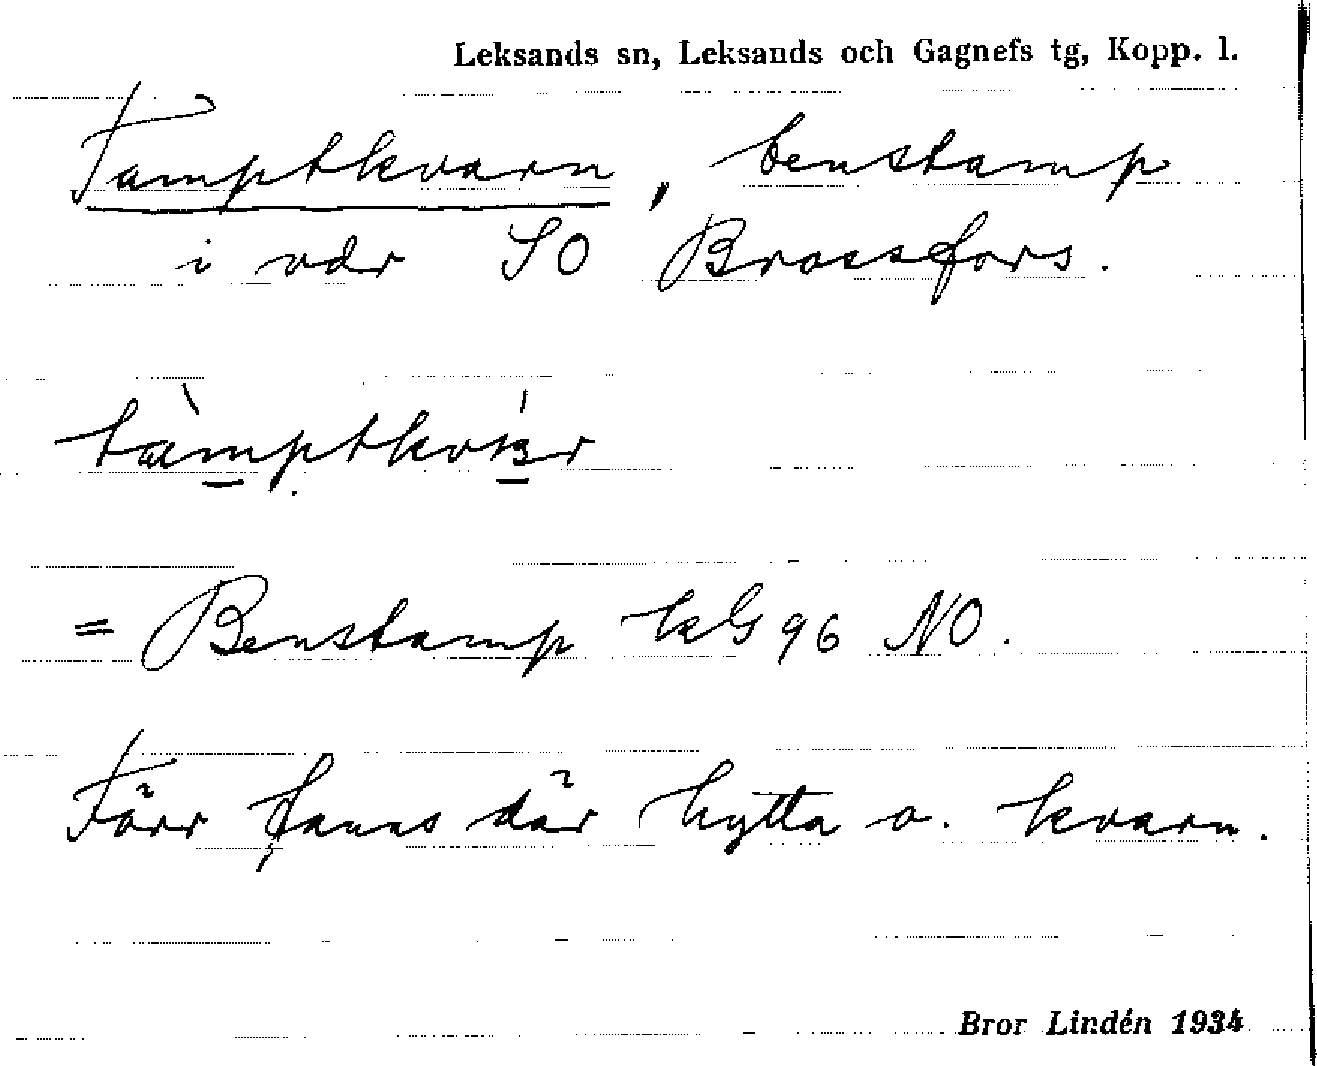 Leksands sn, Leksands och Gagnefs tg, Kopp. l.
Tamptkvarn, benstamp
i vdr SO Brassfors.
= Benstamp kG 96 NO.
Förr fanns där hytta o. kvarn.
Bror Lindén 1934